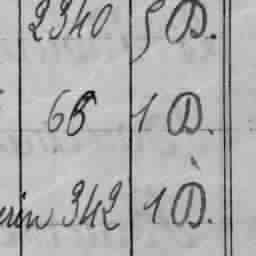 2340 5 D.
65 1 D.
rin 342 1 D.